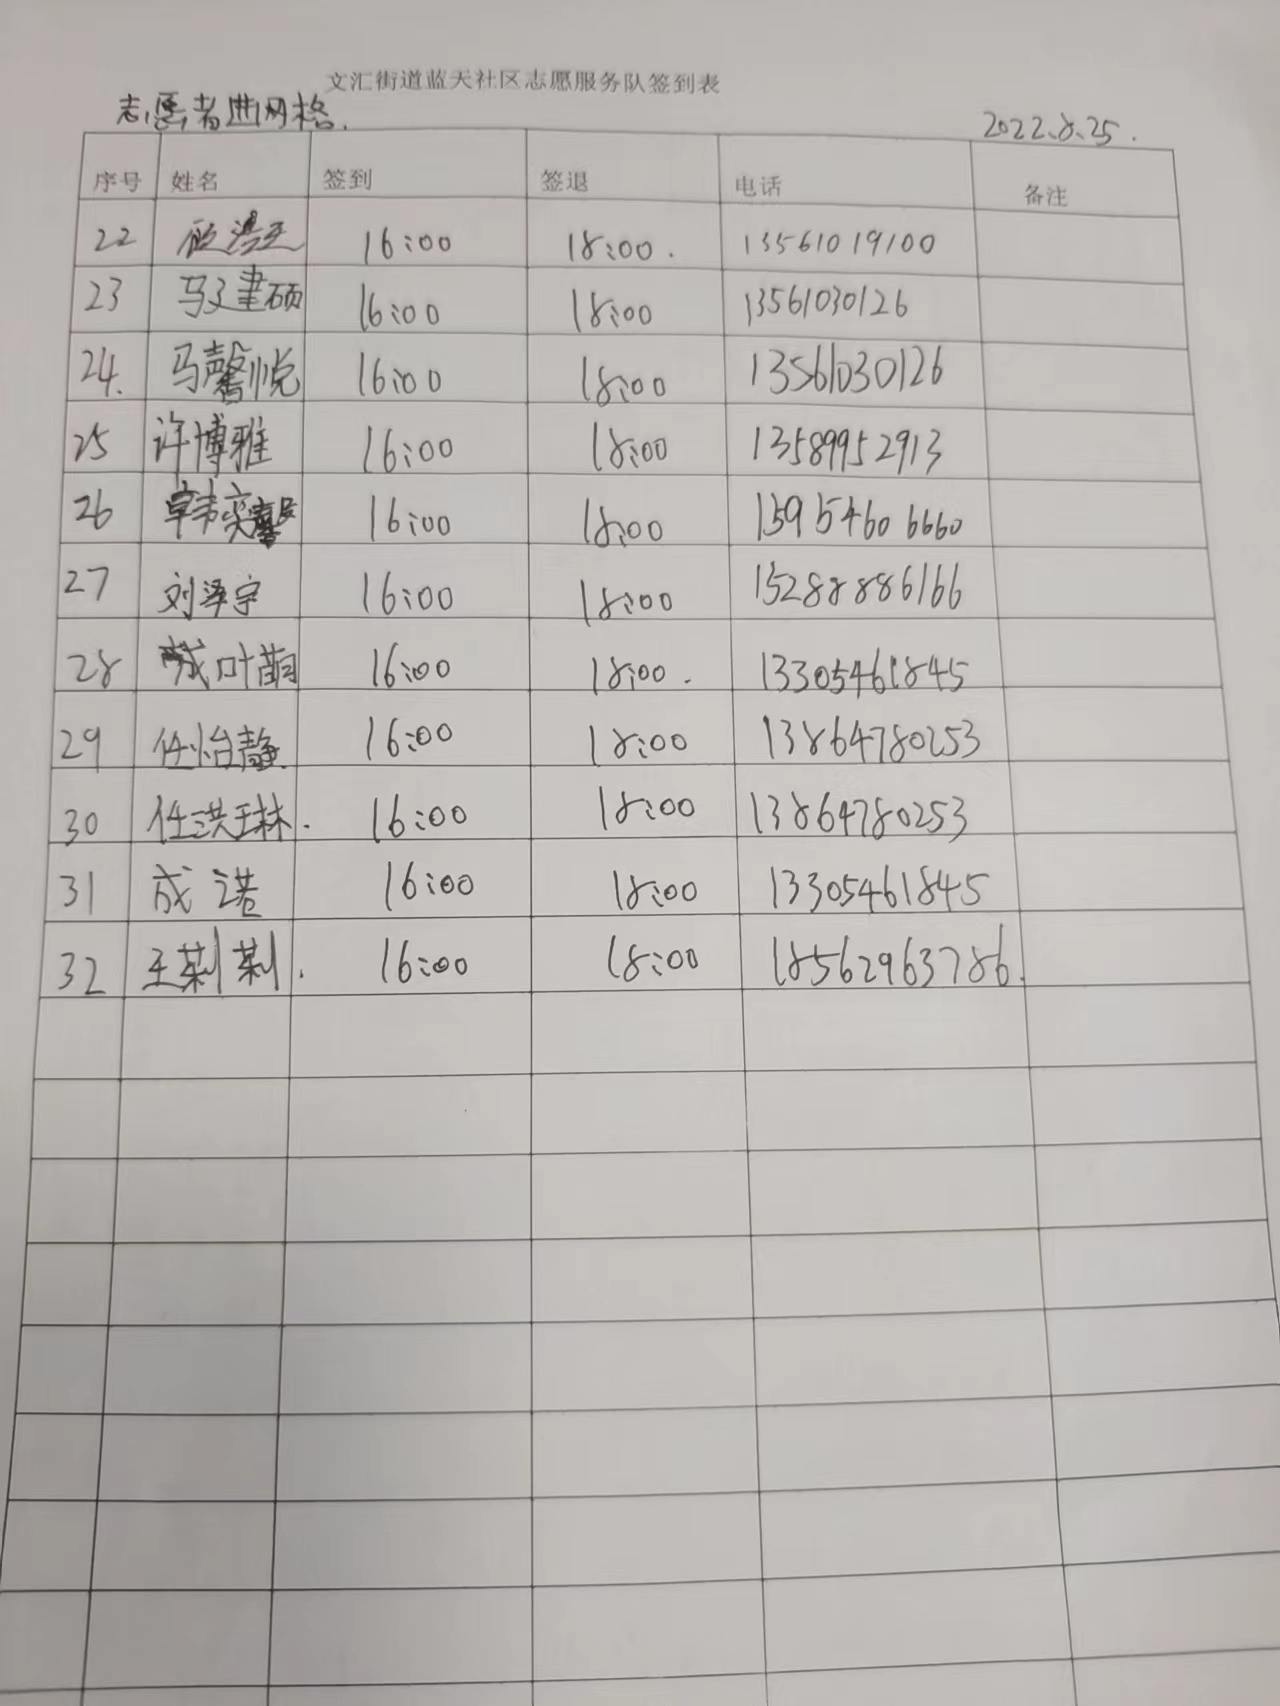 文汇街道蓝天社区志愿服务队签到表
志愿者进网格.
2022.8.25.
序号 姓名 签到 签退 电话 备注
22 16:00 18:00. 13561019100
23 马建硕 16:00 18:00 13561030126
24. 马馨悦 16:00 18:00 13561030126
25 许博雅 16:00 18:00 13589952913
26 韩奕馨 16:00 18:00 15954606660
27 刘泽宇 16:00 18:00 15288886166
28 成叶萌 16:00 18:00. 13305461845
29 任怡静 16:00 18:00 13864780253
30 任洪琳. 16:00 18:00 13864780253
31 成诺 16:00 18:00 13305461845
32 王莉莉. 16:00 18:00 18562963786.